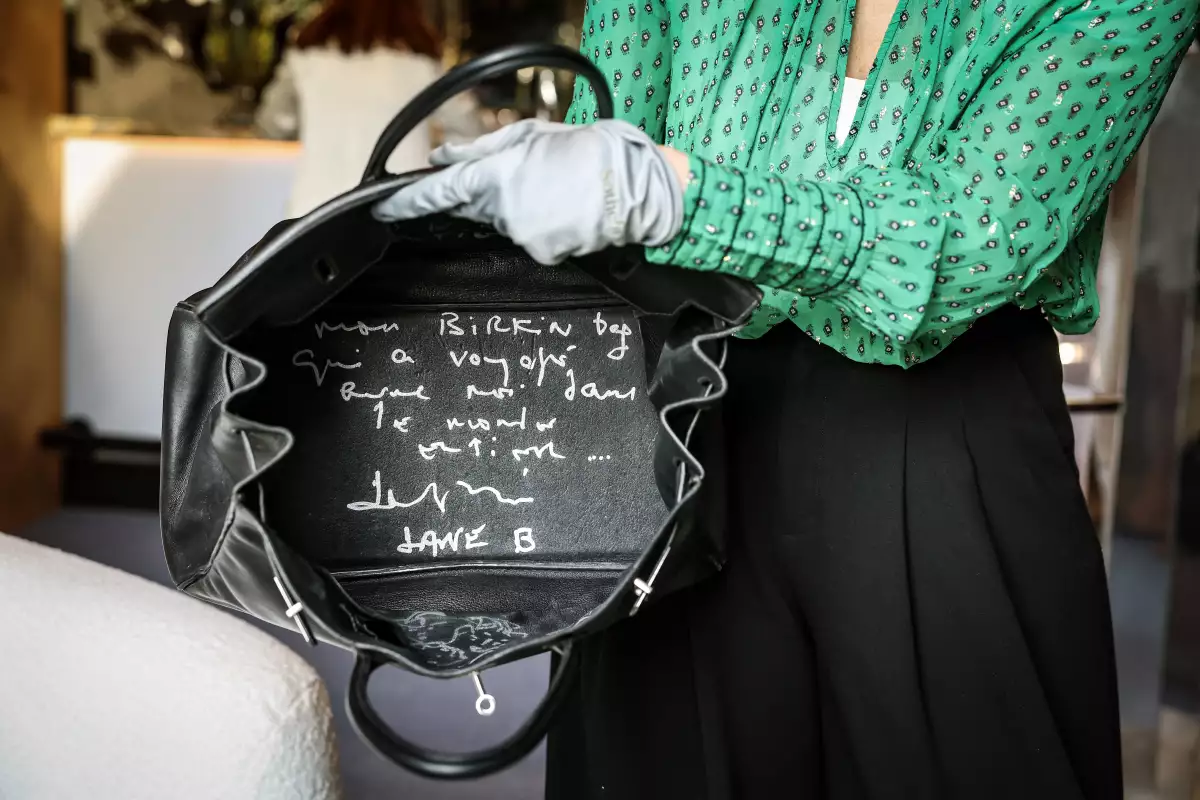 mon BiRKiN bag
qui a voyagé
avec moi dans
le monde
entier ....
JANE B